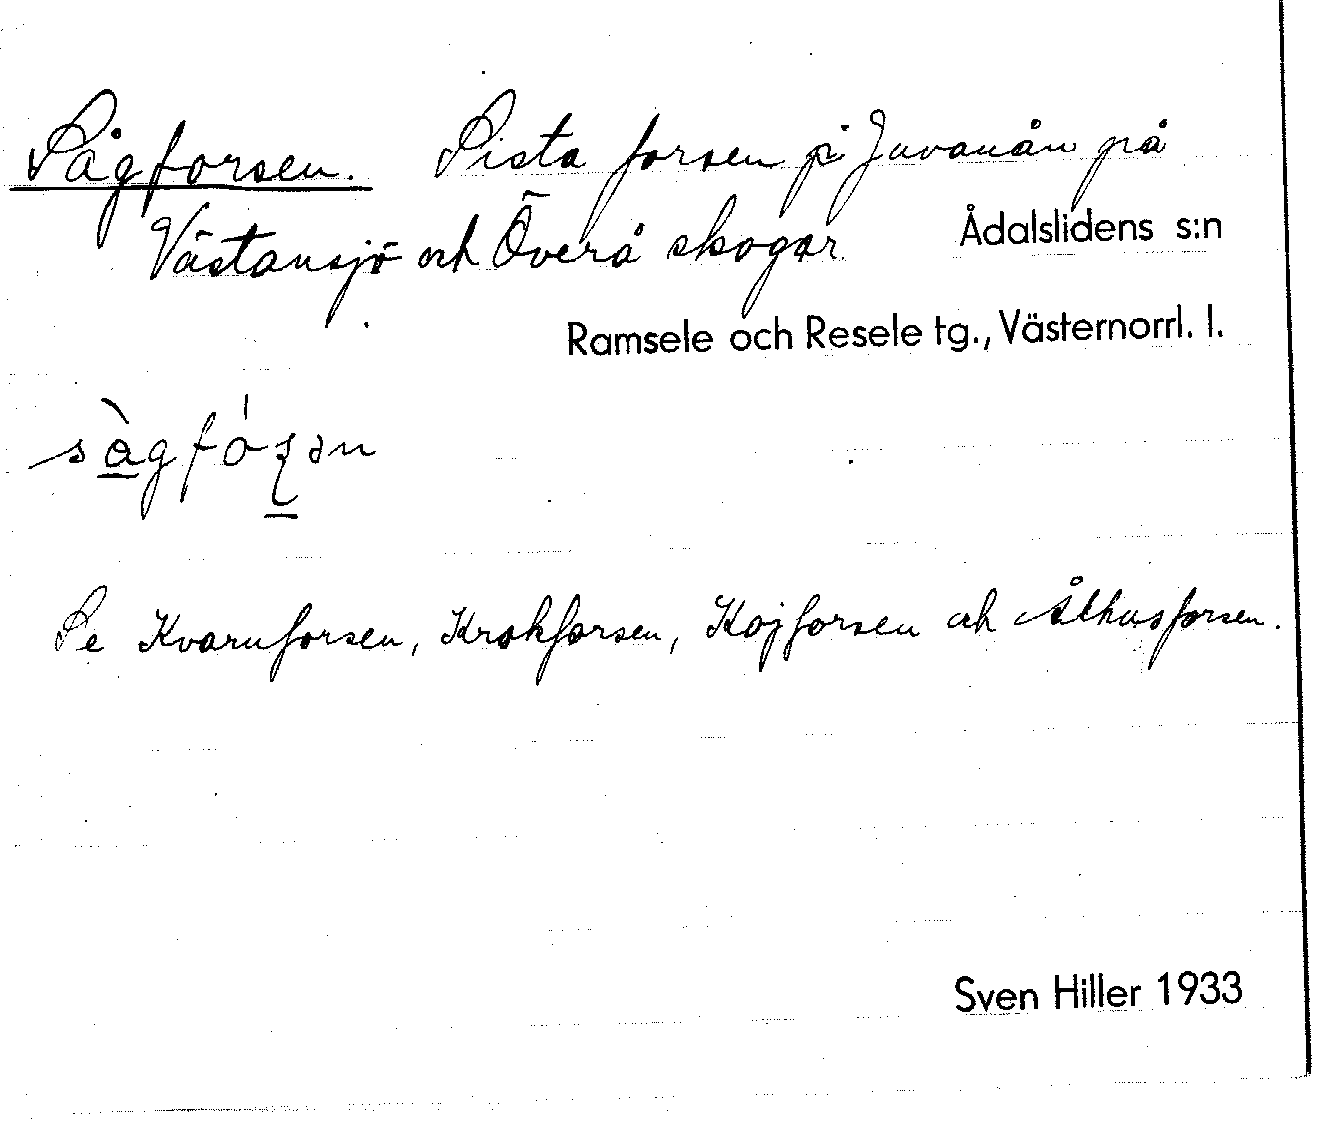 Sågforsen. Sista forsen i Juvanån på
Västansjö och Överå skogar Ådalslidens s:n
Ramsele och Resele tg., Västernorrl. l.
Se Kvarnforsen, Krokforsen, Kojforsen och Ålhusforsen.
Sven Hiller 1933